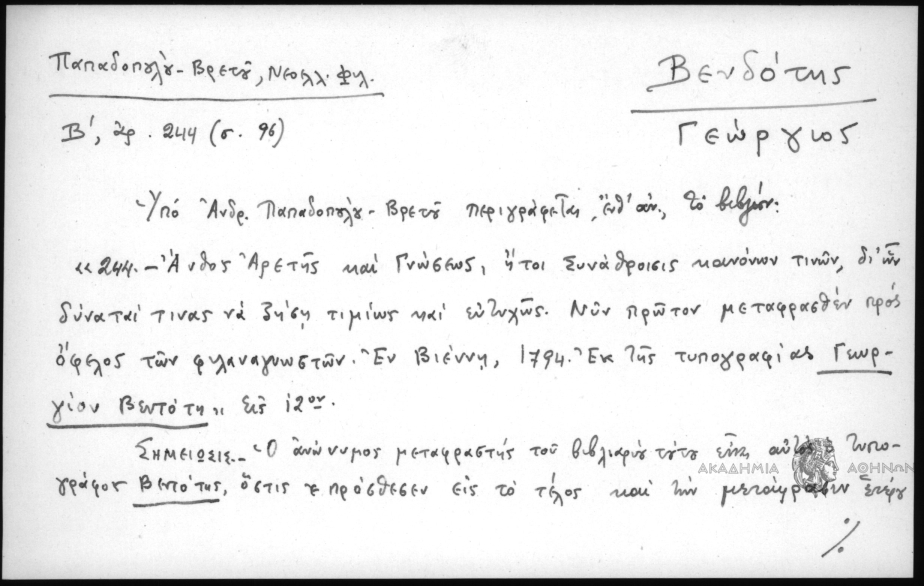 Παπαδοπούλου-Βρετοῦ, Νεοελλ. Φιλ.
Βενδότης
Γεώργιος
Β', ἀρ. 244 (σ. 96)
Ὑπό Ἀνδρ. Παπαδοπούλου-Βρετοῦ περιγράφεται, ἔνθ' ἀν., τό βιβλίον:
«244.- Ἄνθος Ἀρετῆς καί Γνώσεως, ἤτοι Συνάθροισις κανόνων τινῶν, δι' ὧν
δύναταί τινας νά ζήσῃ τιμίως καί εὐτυχῶς. Νῦν πρῶτον μεταφρασθέν πρός
ὄφελος τῶν φιλαναγνωστῶν. Ἐν Βιέννῃ, 1794. Ἐκ τῆς τυπογραφίας Γεωρ-
γίου Βεντότη» εἰς 12ον.
Σημείωσις.- Ὁ ἀνώνυμος μεταφραστής τοῦ βιβλιαρίου τούτου εἶναι αὐτός ὁ τυπο-
γράφος Βεντότης, ὅστις ἐπρόσθεσεν εἰς τό τέλος καί τήν μετάφρασιν ἑτέρου
./.
ΑΚΑΔΗΜΙΑ ΑΘΗΝΩΝ